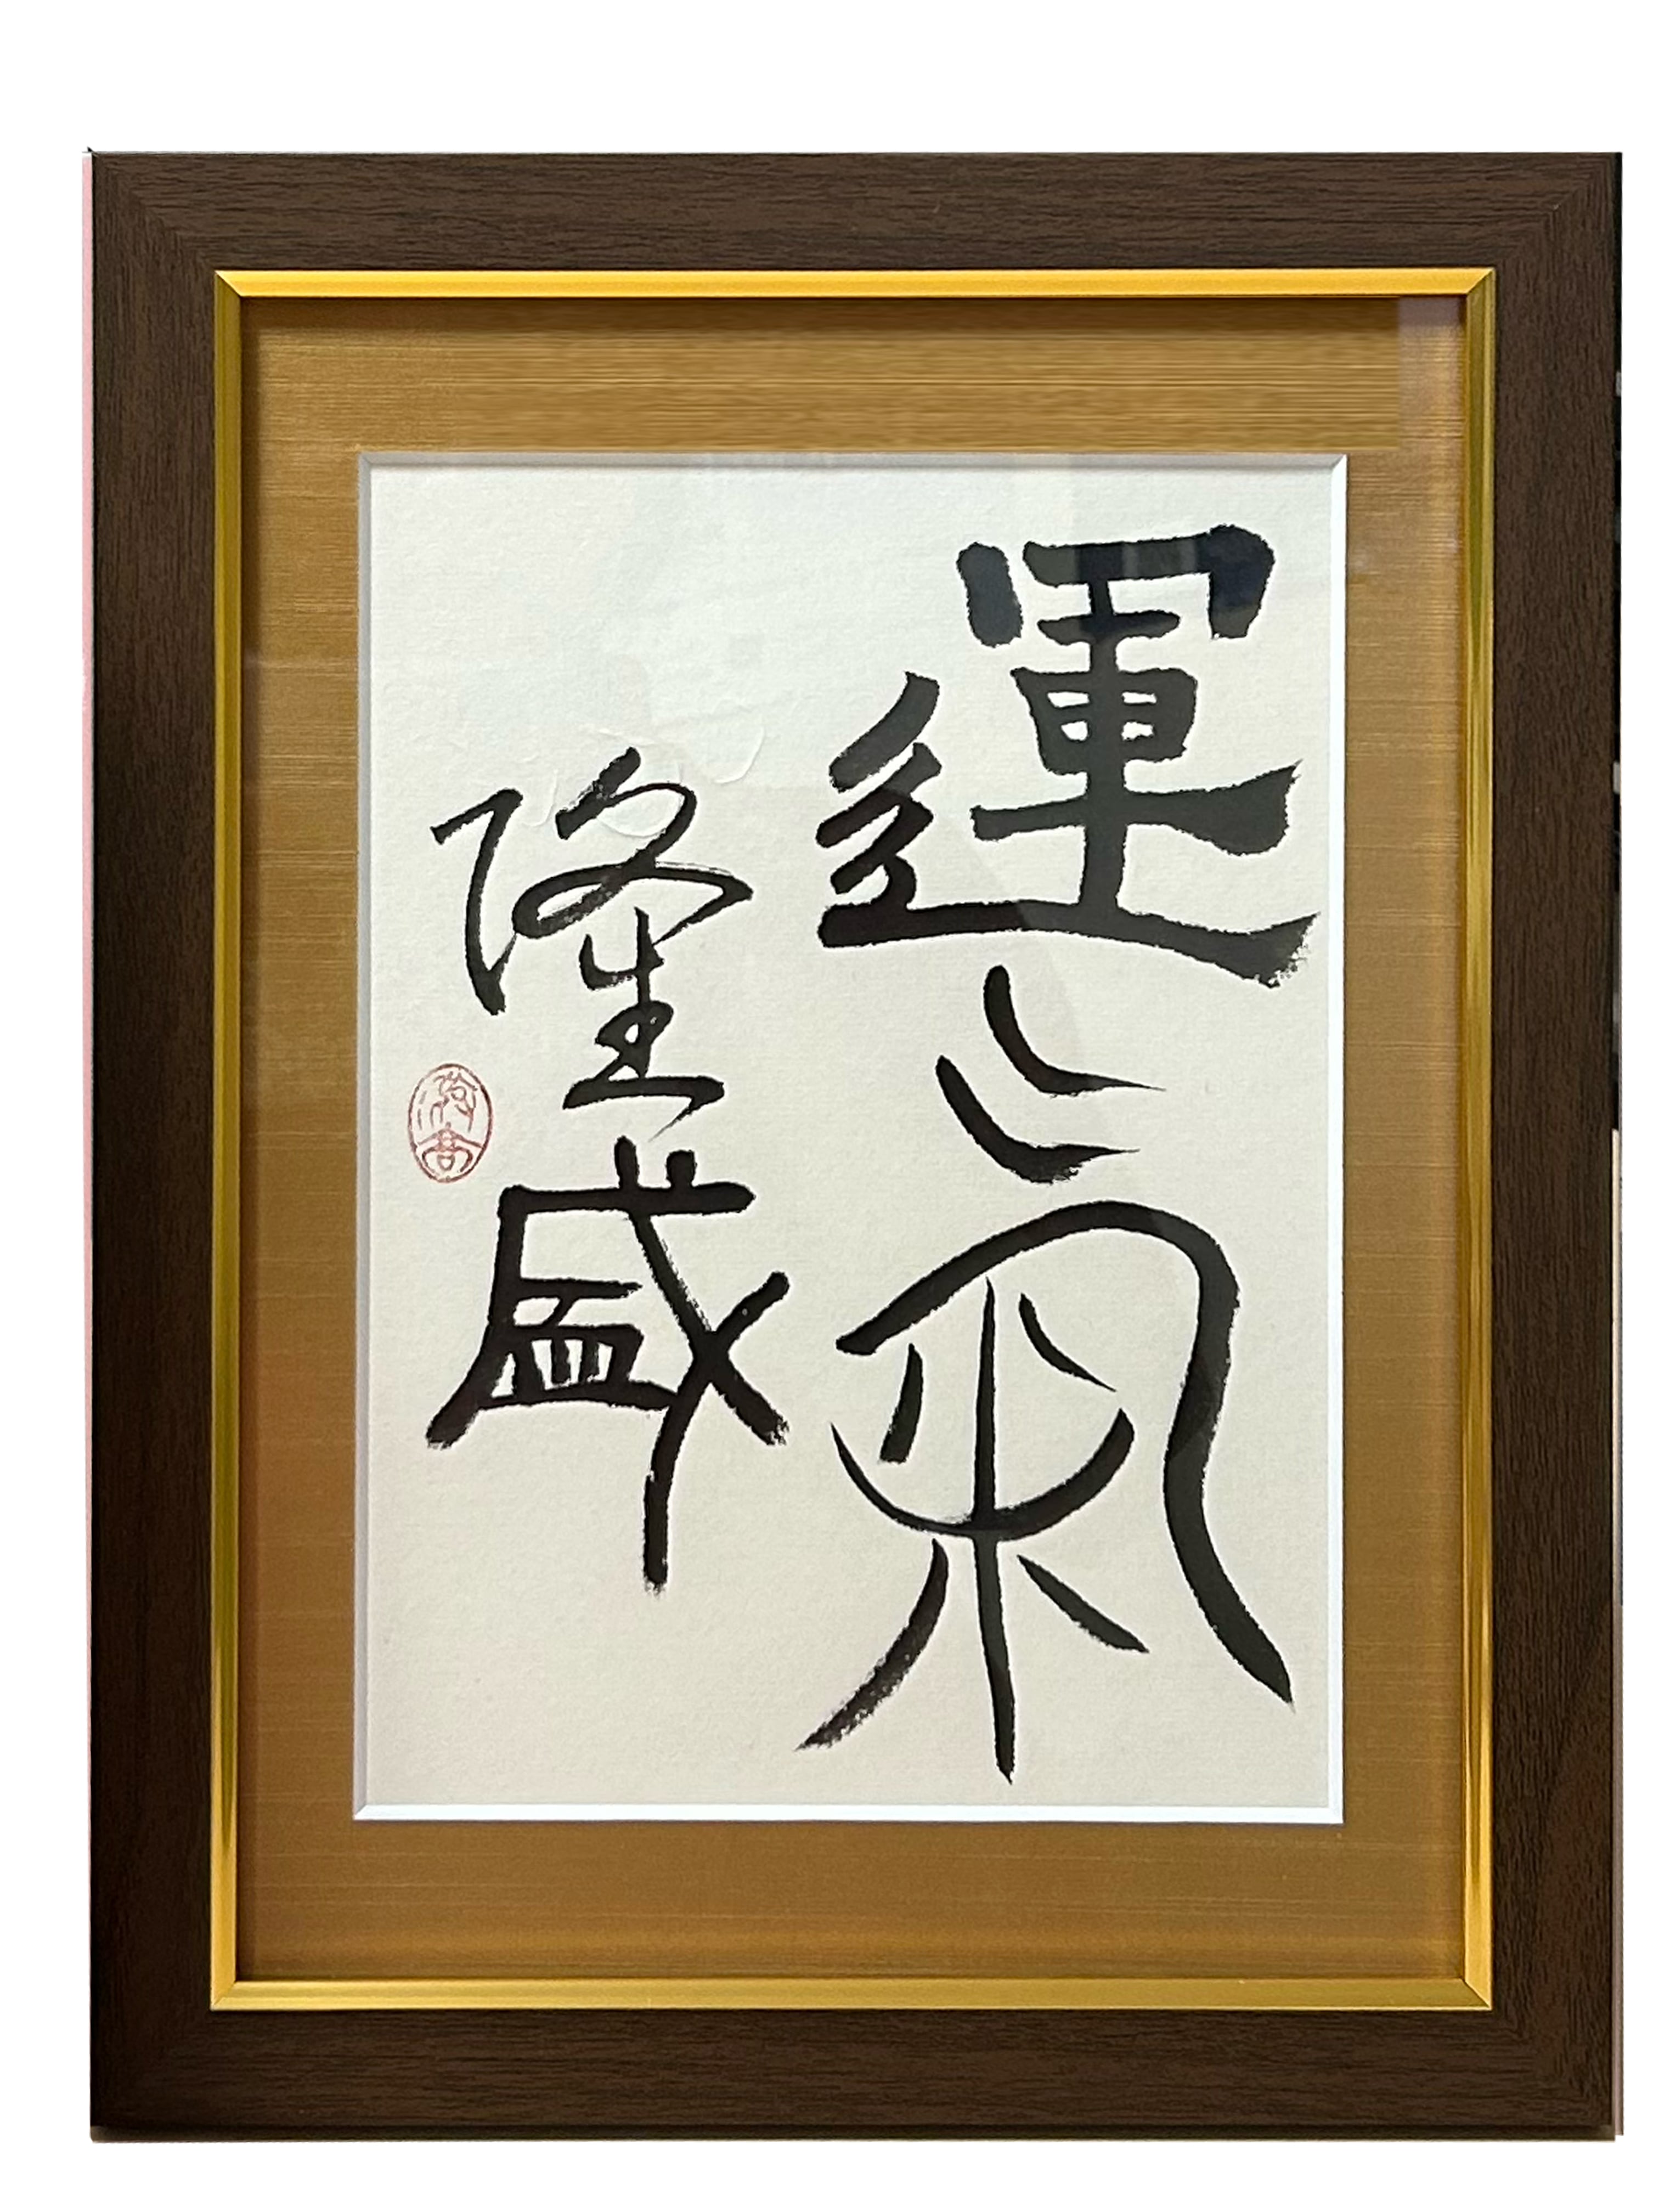 運氣
隆盛